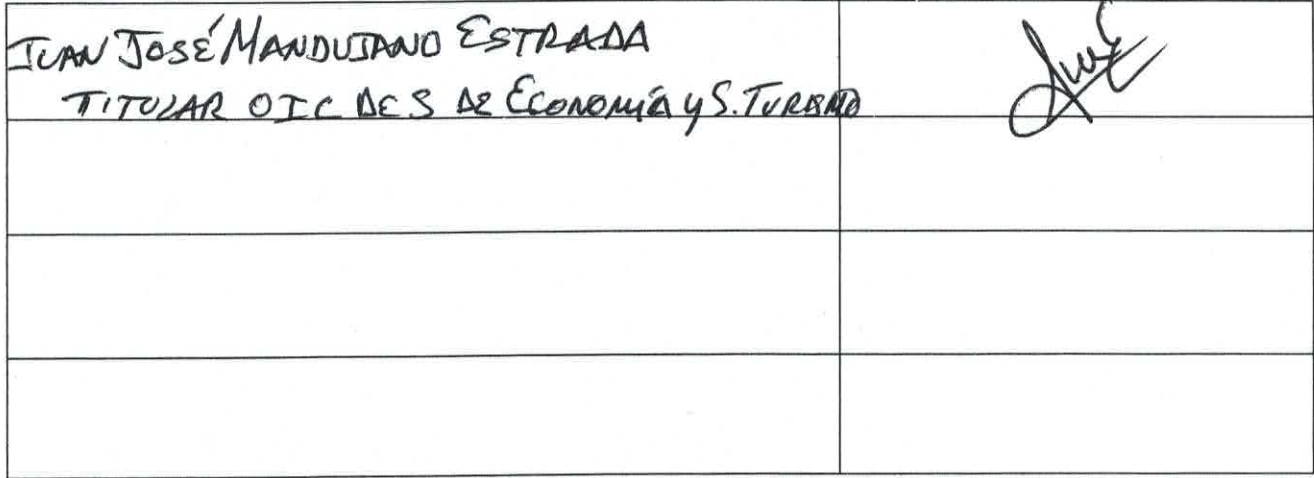 JUAN JOSÉ MANDUJANO ESTRADA
TITULAR OIC DE S DE ECONOMÍA y S. TURISMO